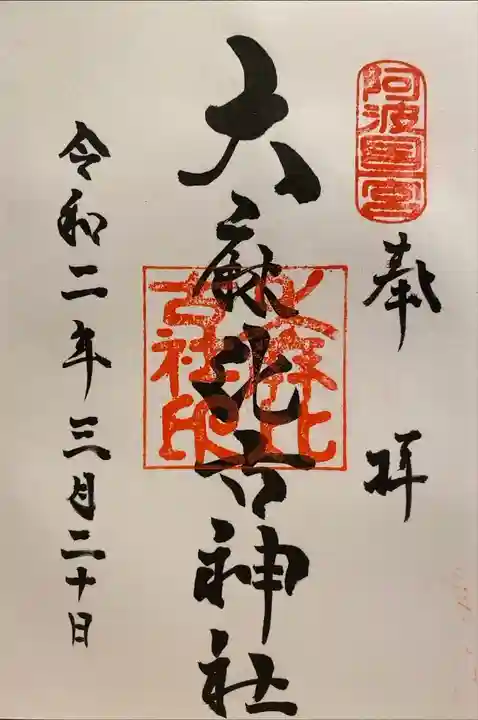 阿波国一宮
奉拝
大麻比古神社
大麻比
古社印
令和二年三月二十日